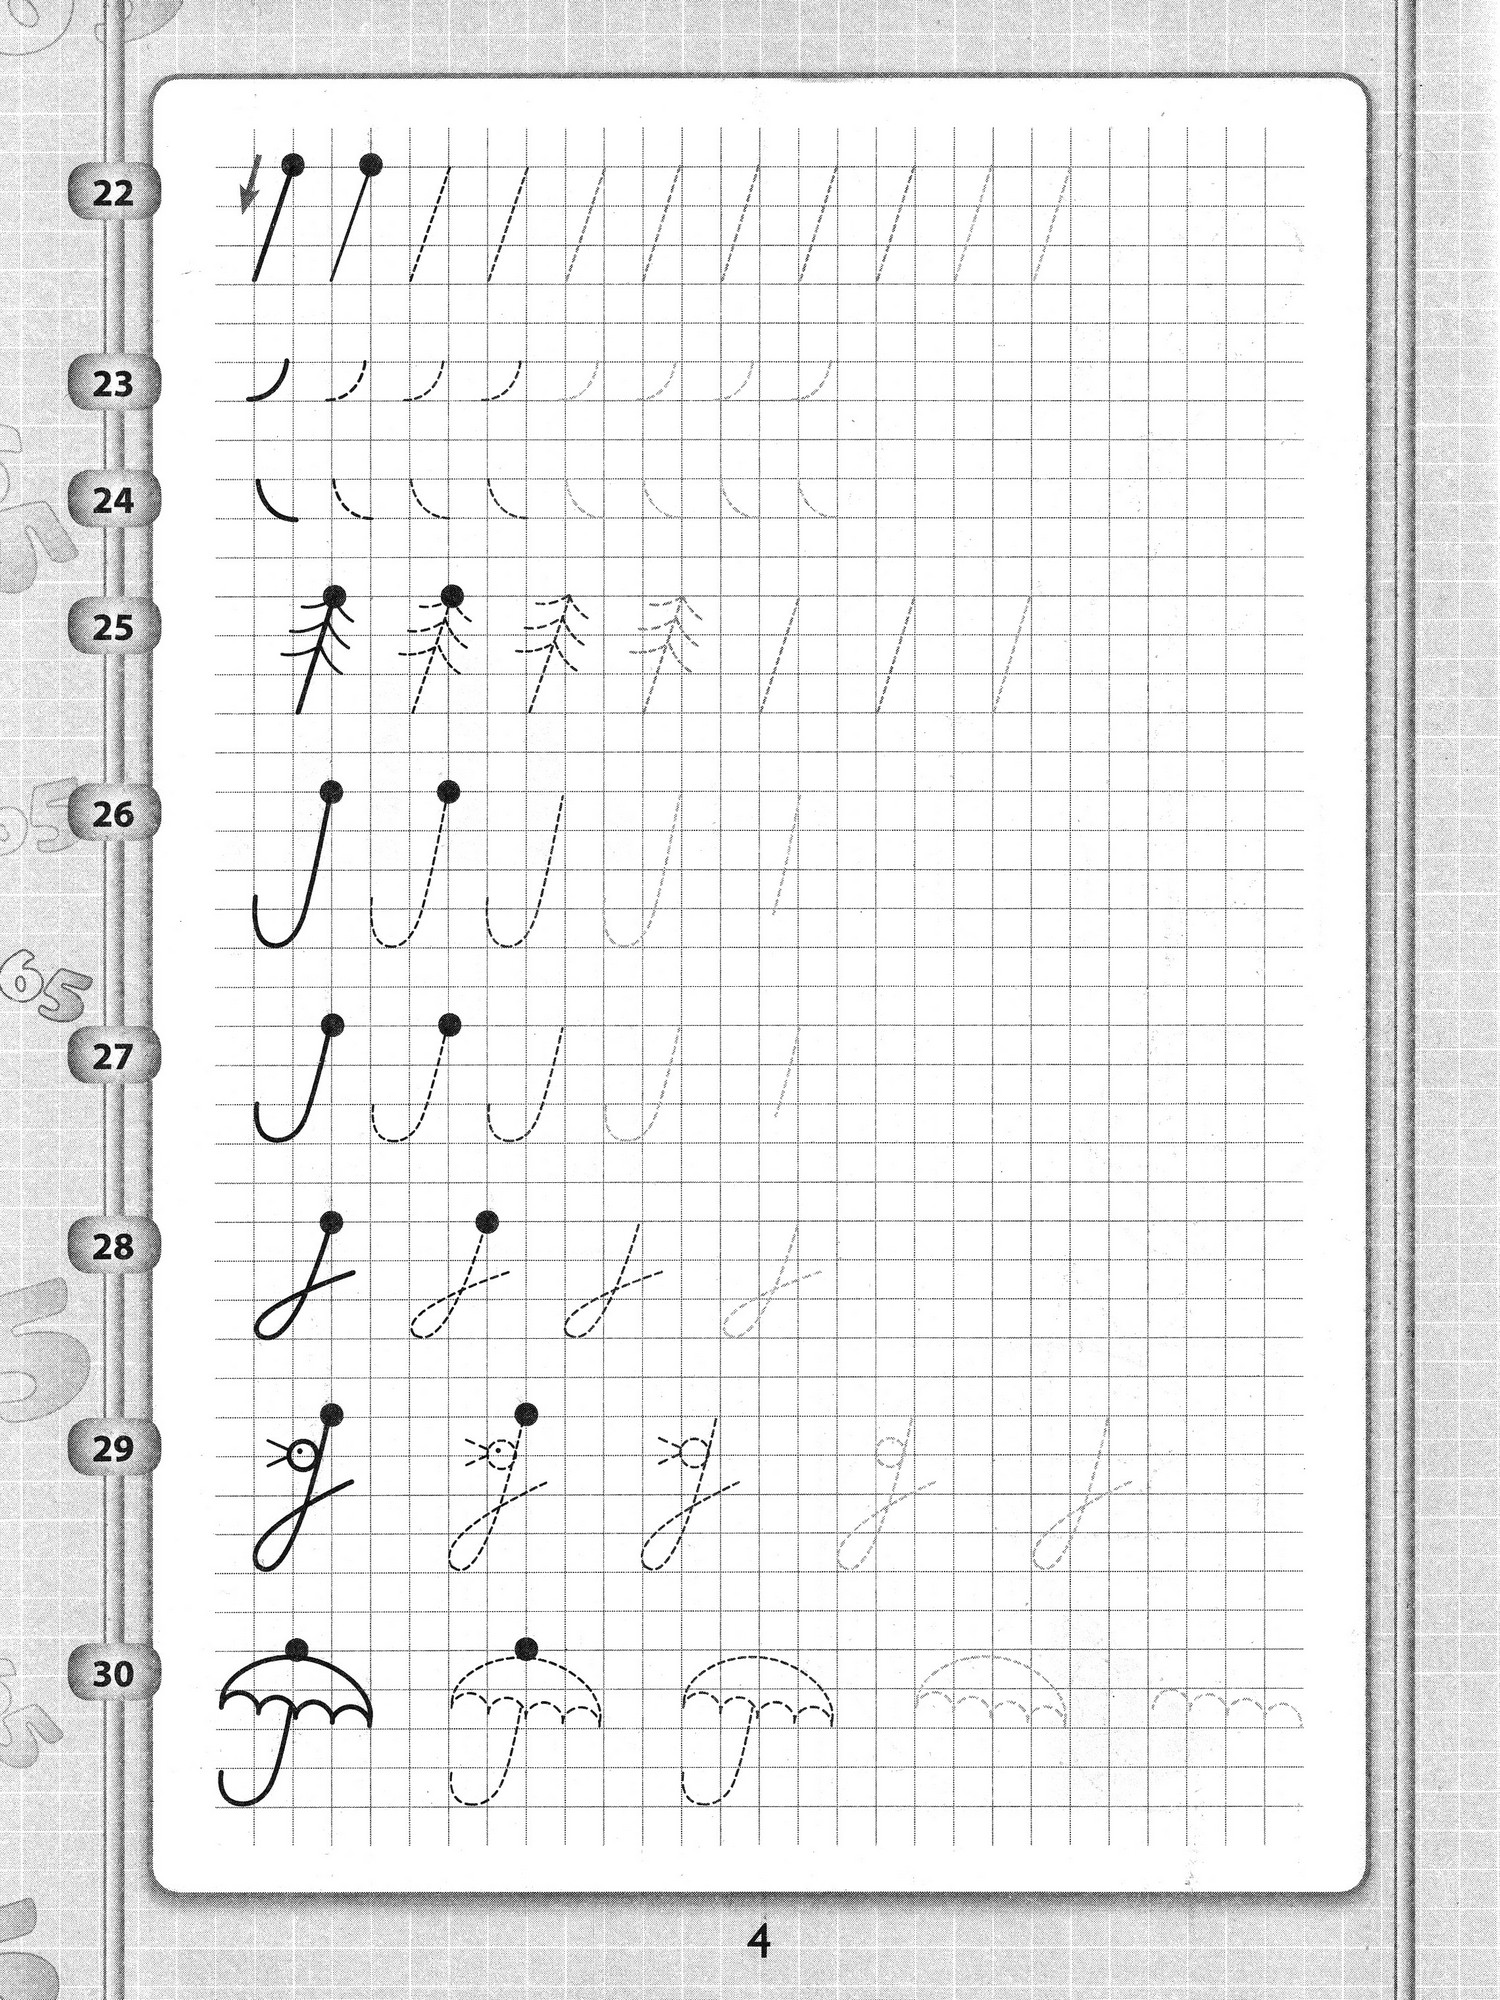 22
23
24
25
26
65
27
28
29
30
4